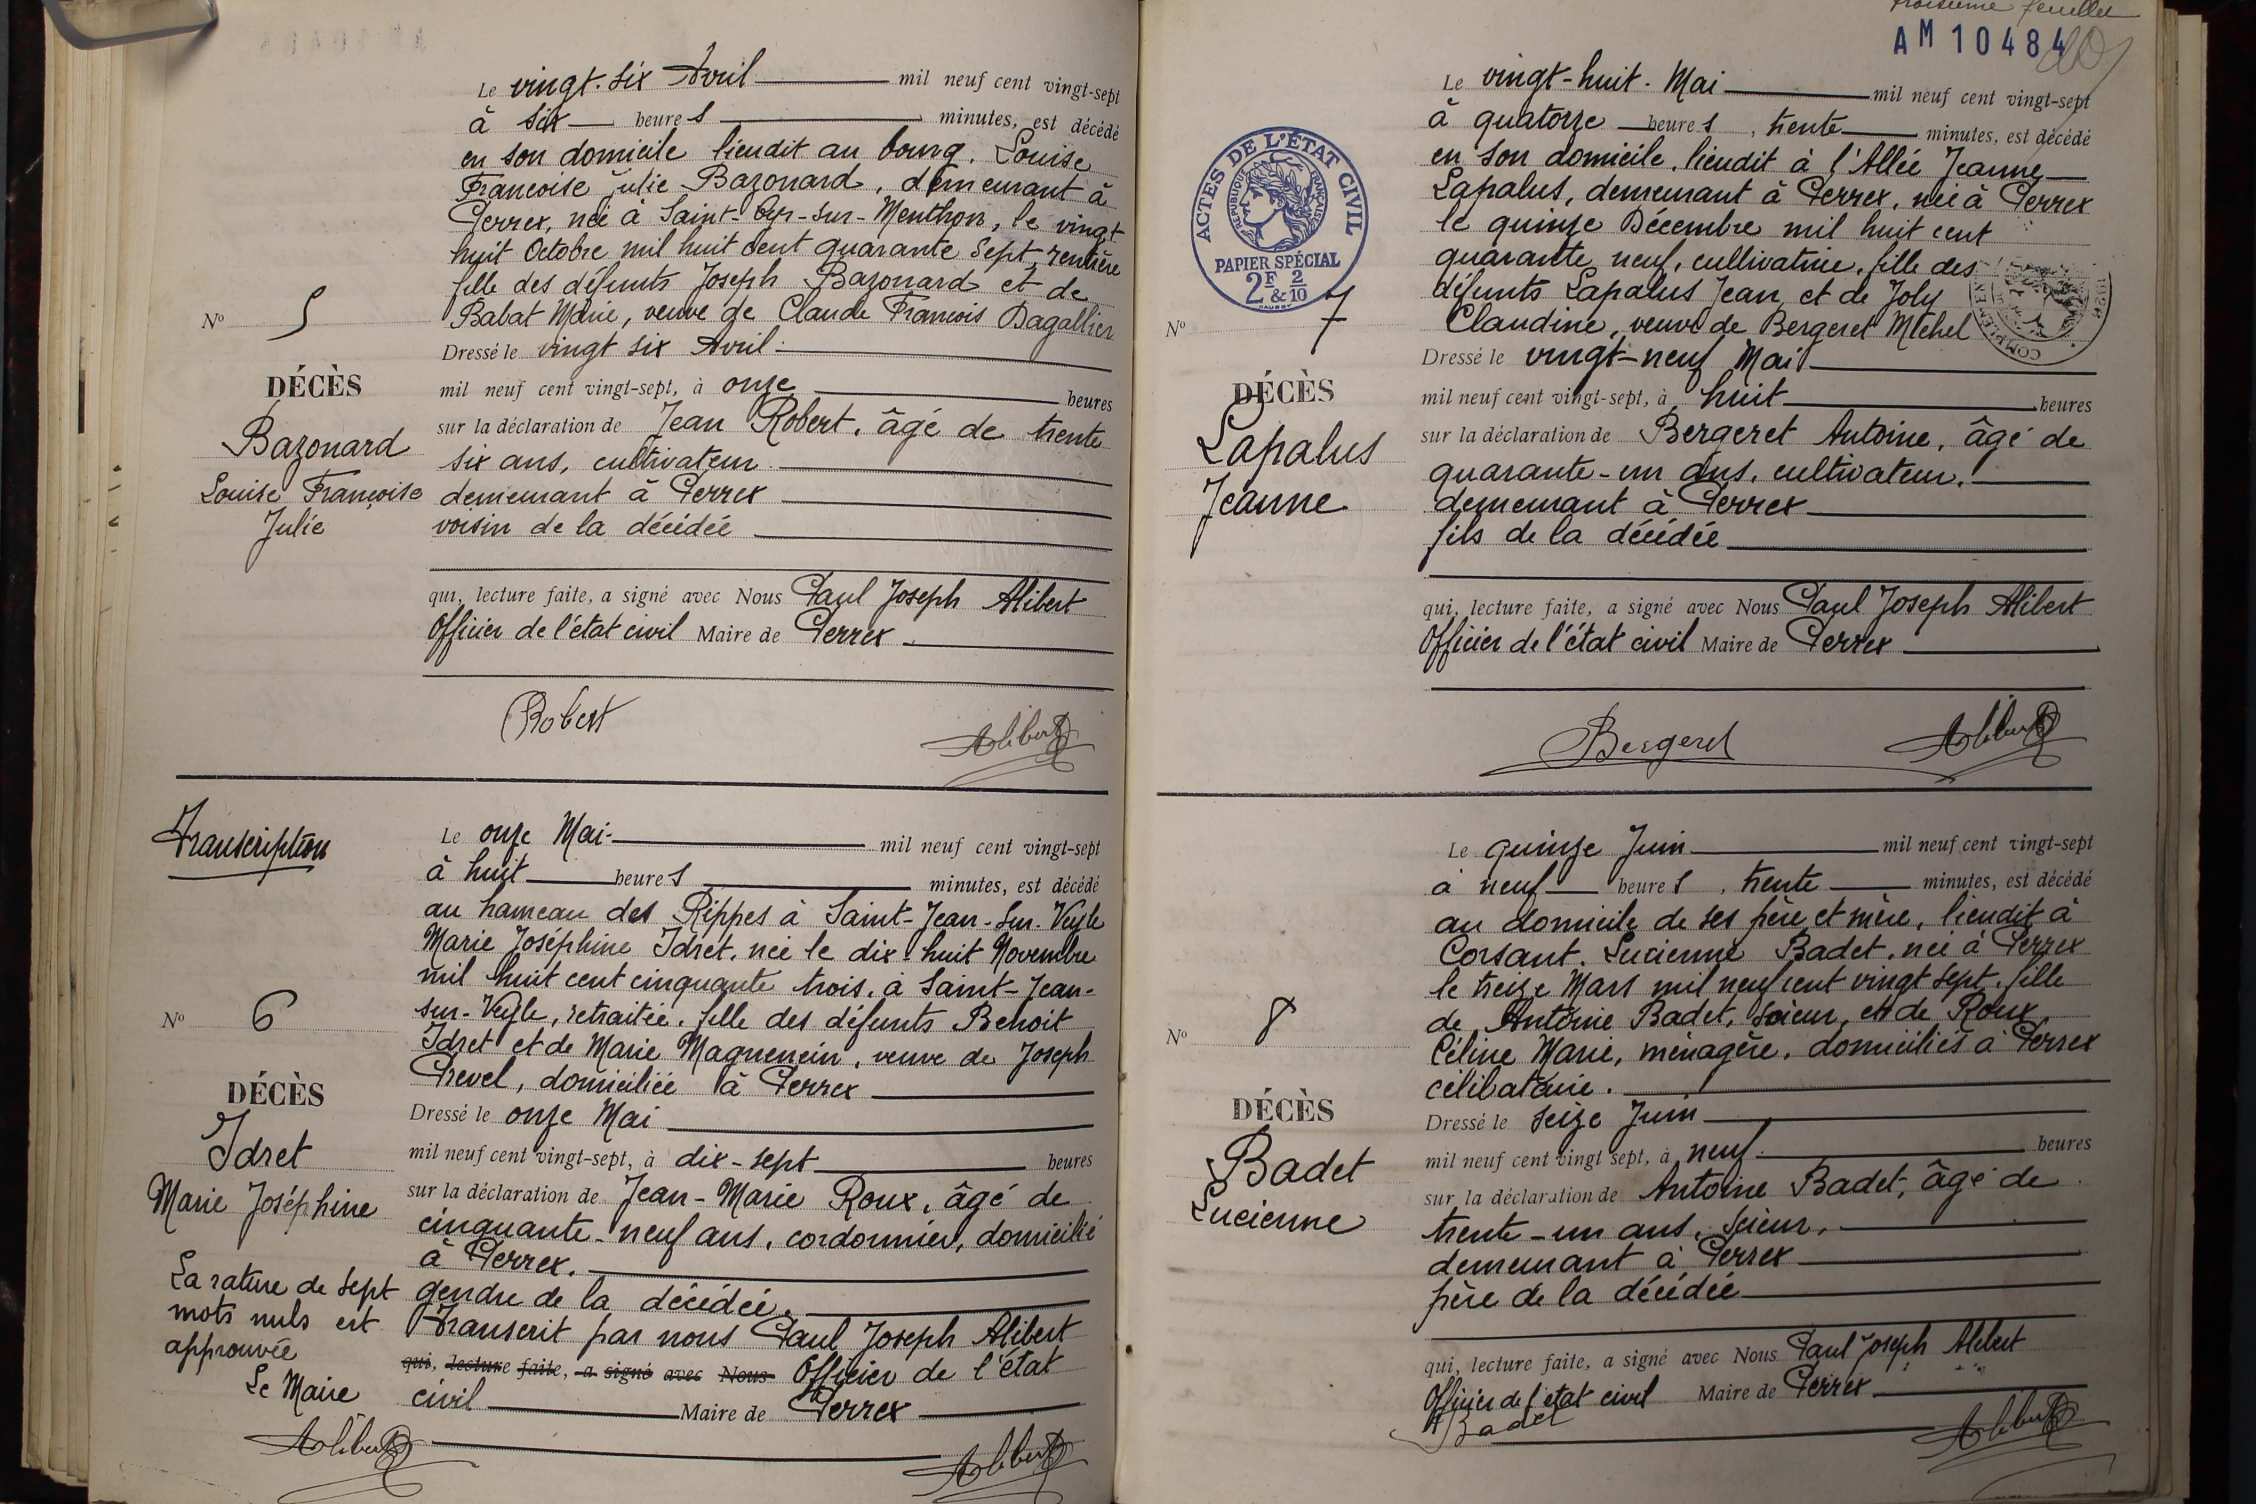 Le vingt-six Avril mil neuf cent vingt-sept
à six heures minutes, est décédé
en son domicile lieudit au bourg. Louise
Françoise Julie Bazonard, demeurant à
Perrex, née à Saint-Cyr-sur-Menthon, le vingt
huit Octobre mil huit cent quarante sept, rentière
fille des défunts Joseph Bazonard et de
Babat Marie, veuve de Claude François Dagallier
Dressé le vingt six Avril
mil neuf cent vingt-sept, à onze heures
sur la déclaration de Jean Robert, âgé de trente
six ans, cultivateur
demeurant à Perrex
voisin de la décédée
qui, lecture faite, a signé avec Nous Paul Joseph Alibert
Officier de l'état civil Maire de Perrex
Robert Alibert
N° 5
DÉCÈS
Bazonard
Louise Françoise
Julie
Transcription
Le onze Mai mil neuf cent vingt-sept
à huit heures minutes, est décédé
au hameau des Rippes à Saint-Jean-sur-Veyle
Marie Joséphine Idret, née le dix huit Novembre
mil huit cent cinquante trois, à Saint-Jean-
sur-Veyle, retraitée, fille des défunts Benoit
Idret et de Marie Maguenein, veuve de Joseph
Prevel, domiciliée à Perrex
Dressé le onze Mai
mil neuf cent vingt-sept, à dix-sept heures
sur la déclaration de Jean-Marie Roux, âgé de
cinquante-neuf ans, cordonnier, domicilié
à Perrex.
gendre de la décédée.
Transcrit par nous Paul Joseph Alibert
qui, lecture faite, a signé avec Nous Officier de l'état
civil Maire de Perrex
Alibert
N° 6
DÉCÈS
Idret
Marie Joséphine
La rature de sept
mots nuls est
approuvée
Le Maire
Alibert
troisième feuillet
AM 10484
ACTES DE L'ÉTAT CIVIL
RÉPUBLIQUE FRANÇAISE
PAPIER SPÉCIAL
2F & 2/10
Le vingt-huit Mai mil neuf cent vingt-sept
à quatorze heures, trente minutes, est décédé
en son domicile, lieudit à l'Allée Jeanne
Lapalus, demeurant à Perrex, née à Perrex
le quinze Décembre mil huit cent
quarante neuf, cultivatrice, fille des
défunts Lapalus Jean et de Joly
Claudine, veuve de Bergeret Michel
Dressé le vingt-neuf Mai
mil neuf cent vingt-sept, à huit heures
sur la déclaration de Bergeret Antoine, âgé de
quarante-un ans, cultivateur,
demeurant à Perrex
fils de la décédée
qui, lecture faite, a signé avec Nous Paul Joseph Alibert
Officier de l'état civil Maire de Perrex
Bergeret Alibert
N° 7
DÉCÈS
Lapalus
Jeanne
Le quinze Juin mil neuf cent vingt-sept
à neuf heures, trente minutes, est décédé
au domicile de ses père et mère, lieudit à
Corsant. Lucienne Badet, née à Perrex
le treize Mars mil neuf cent vingt sept, fille
de Antoine Badet, scieur, et de Roux
Céline Marie, ménagère, domiciliés à Perrex
célibataire.
Dressé le seize Juin
mil neuf cent vingt sept, à neuf heures
sur la déclaration de Antoine Badet, âgé de
trente-un ans, scieur,
demeurant à Perrex
père de la décédée
qui, lecture faite, a signé avec Nous Paul Joseph Alibert
Officier de l'état civil Maire de Perrex
Badet Alibert
N° 8
DÉCÈS
Badet
Lucienne